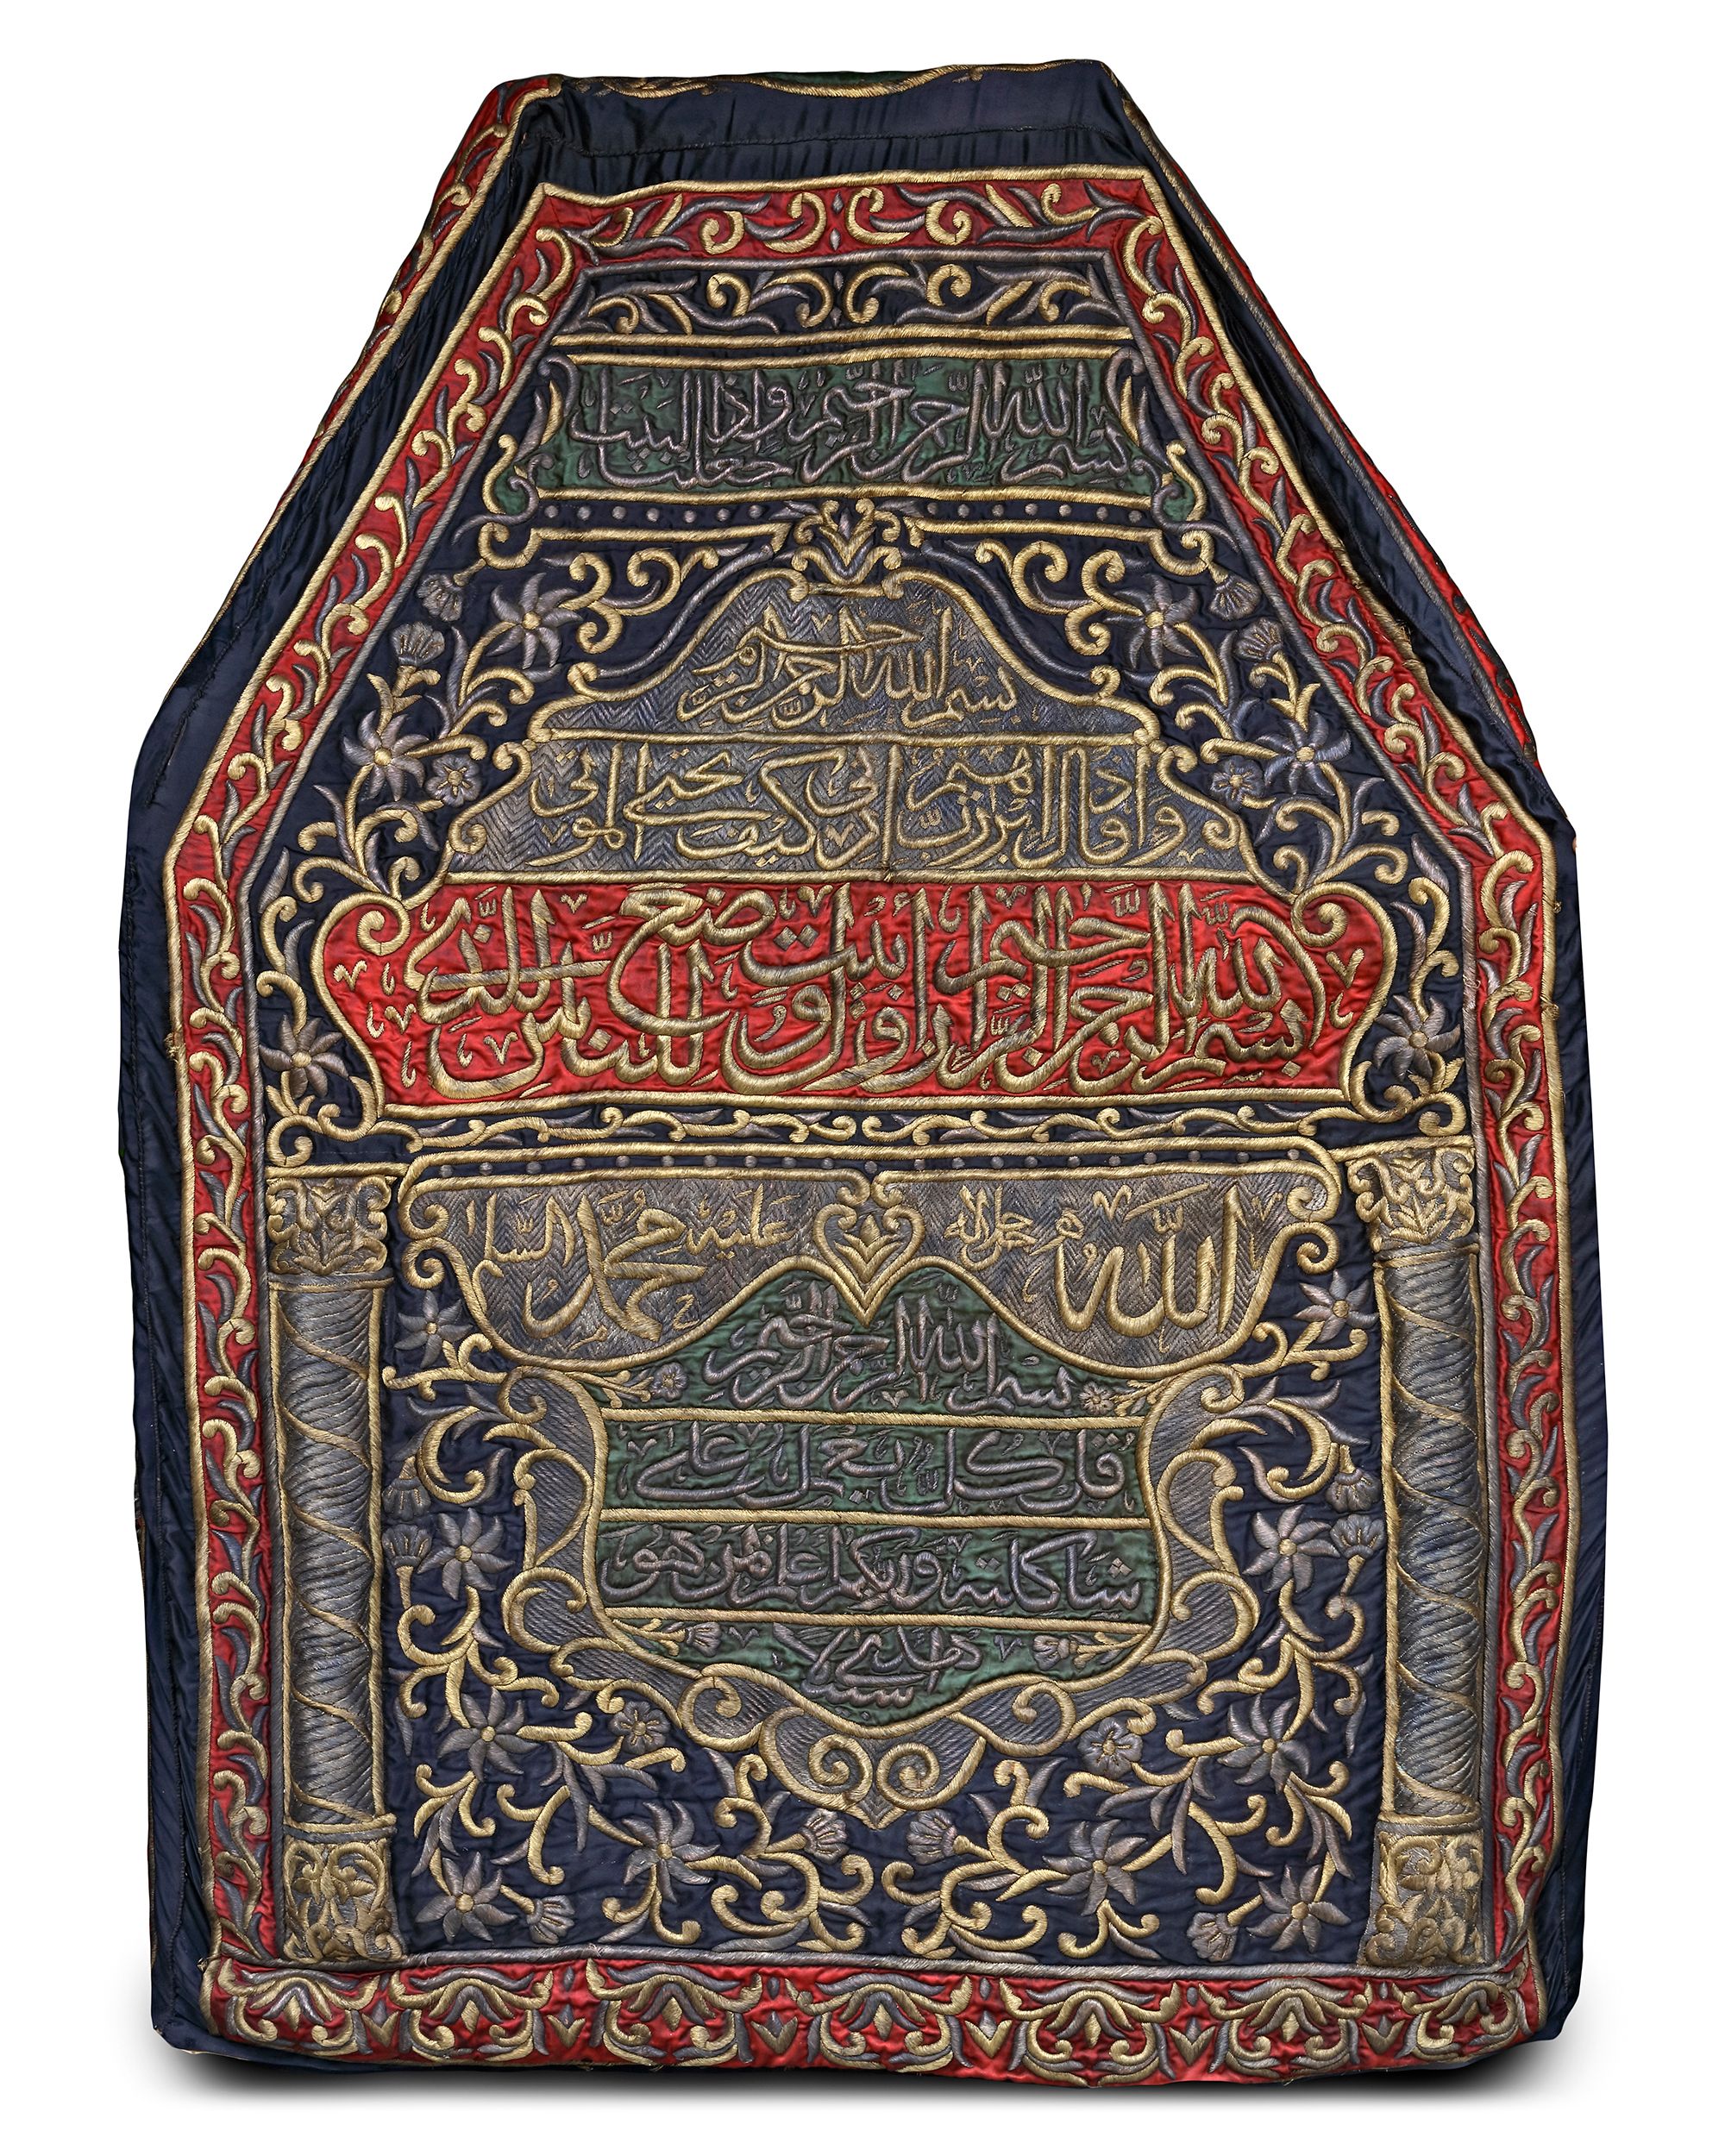 بسم الله الرحمن الرحيم واذ جعلنا البيت
بسم الله الرحمن الرحيم
واذ قال ابرهيم رب ارني كيف تحيي الموتى
بسم الله الرحمن الرحيم ان اول بيت وضع للناس للذي
الله جل جلاله محمد عليه السلا
بسم الله الرحمن الرحيم
قل كل يعمل على
شاكلته وربكم اعلم بمن هو
اهدى سبيلا